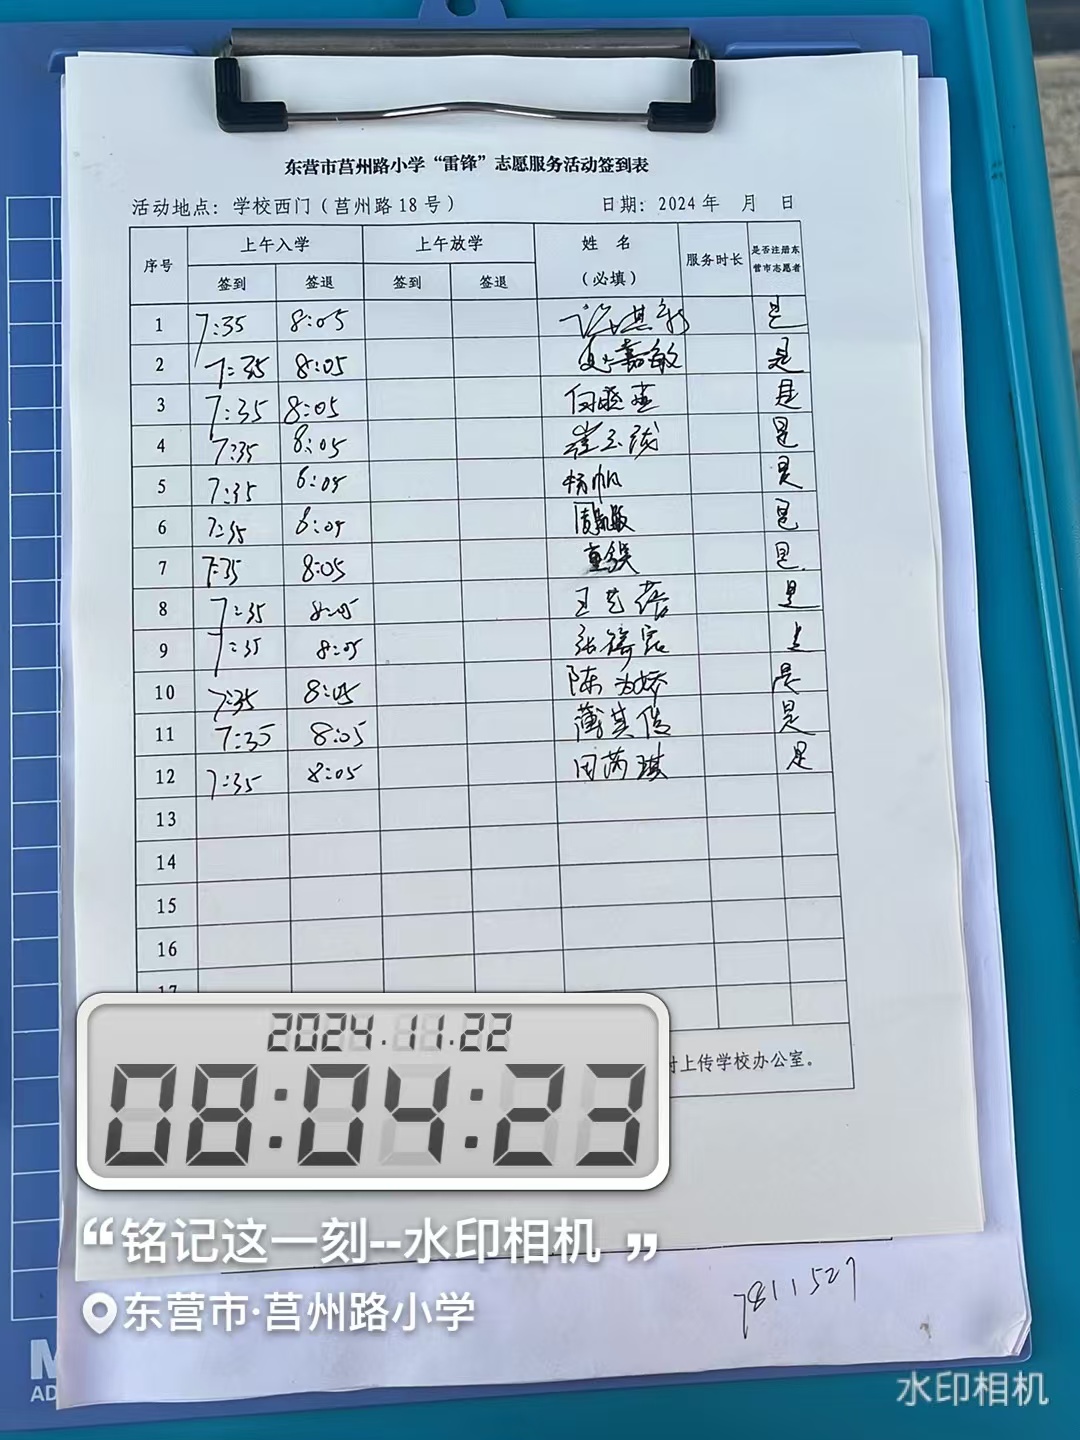 东营市莒州路小学“雷锋”志愿服务活动签到表
活动地点：学校西门（莒州路18号） 日期：2024年 月 日
序号 上午入学 上午放学 姓名（必填） 服务时长 是否注册东营市志愿者
签到 签退 签到 签退
1 7:35 8:05 是
2 7:35 8:05 嘉敏 是
3 7:35 8:05 是
4 7:35 8:05 崔玉 是
5 7:35 8:05 杨帆 是
6 7:35 8:05 周 是
7 7:35 8:05 董 是
8 7:35 8:05 王艺蓓 是
9 7:35 8:05 张 是
10 7:35 8:05 陈 娇 是
11 7:35 8:05 薄其俊 是
12 7:35 8:05 田芮琪 是
13
14
15
16
17
时上传学校办公室。
2024.11.22
08:04:23
“铭记这一刻--水印相机”
东营市·莒州路小学
7811527
M
AD
水印相机